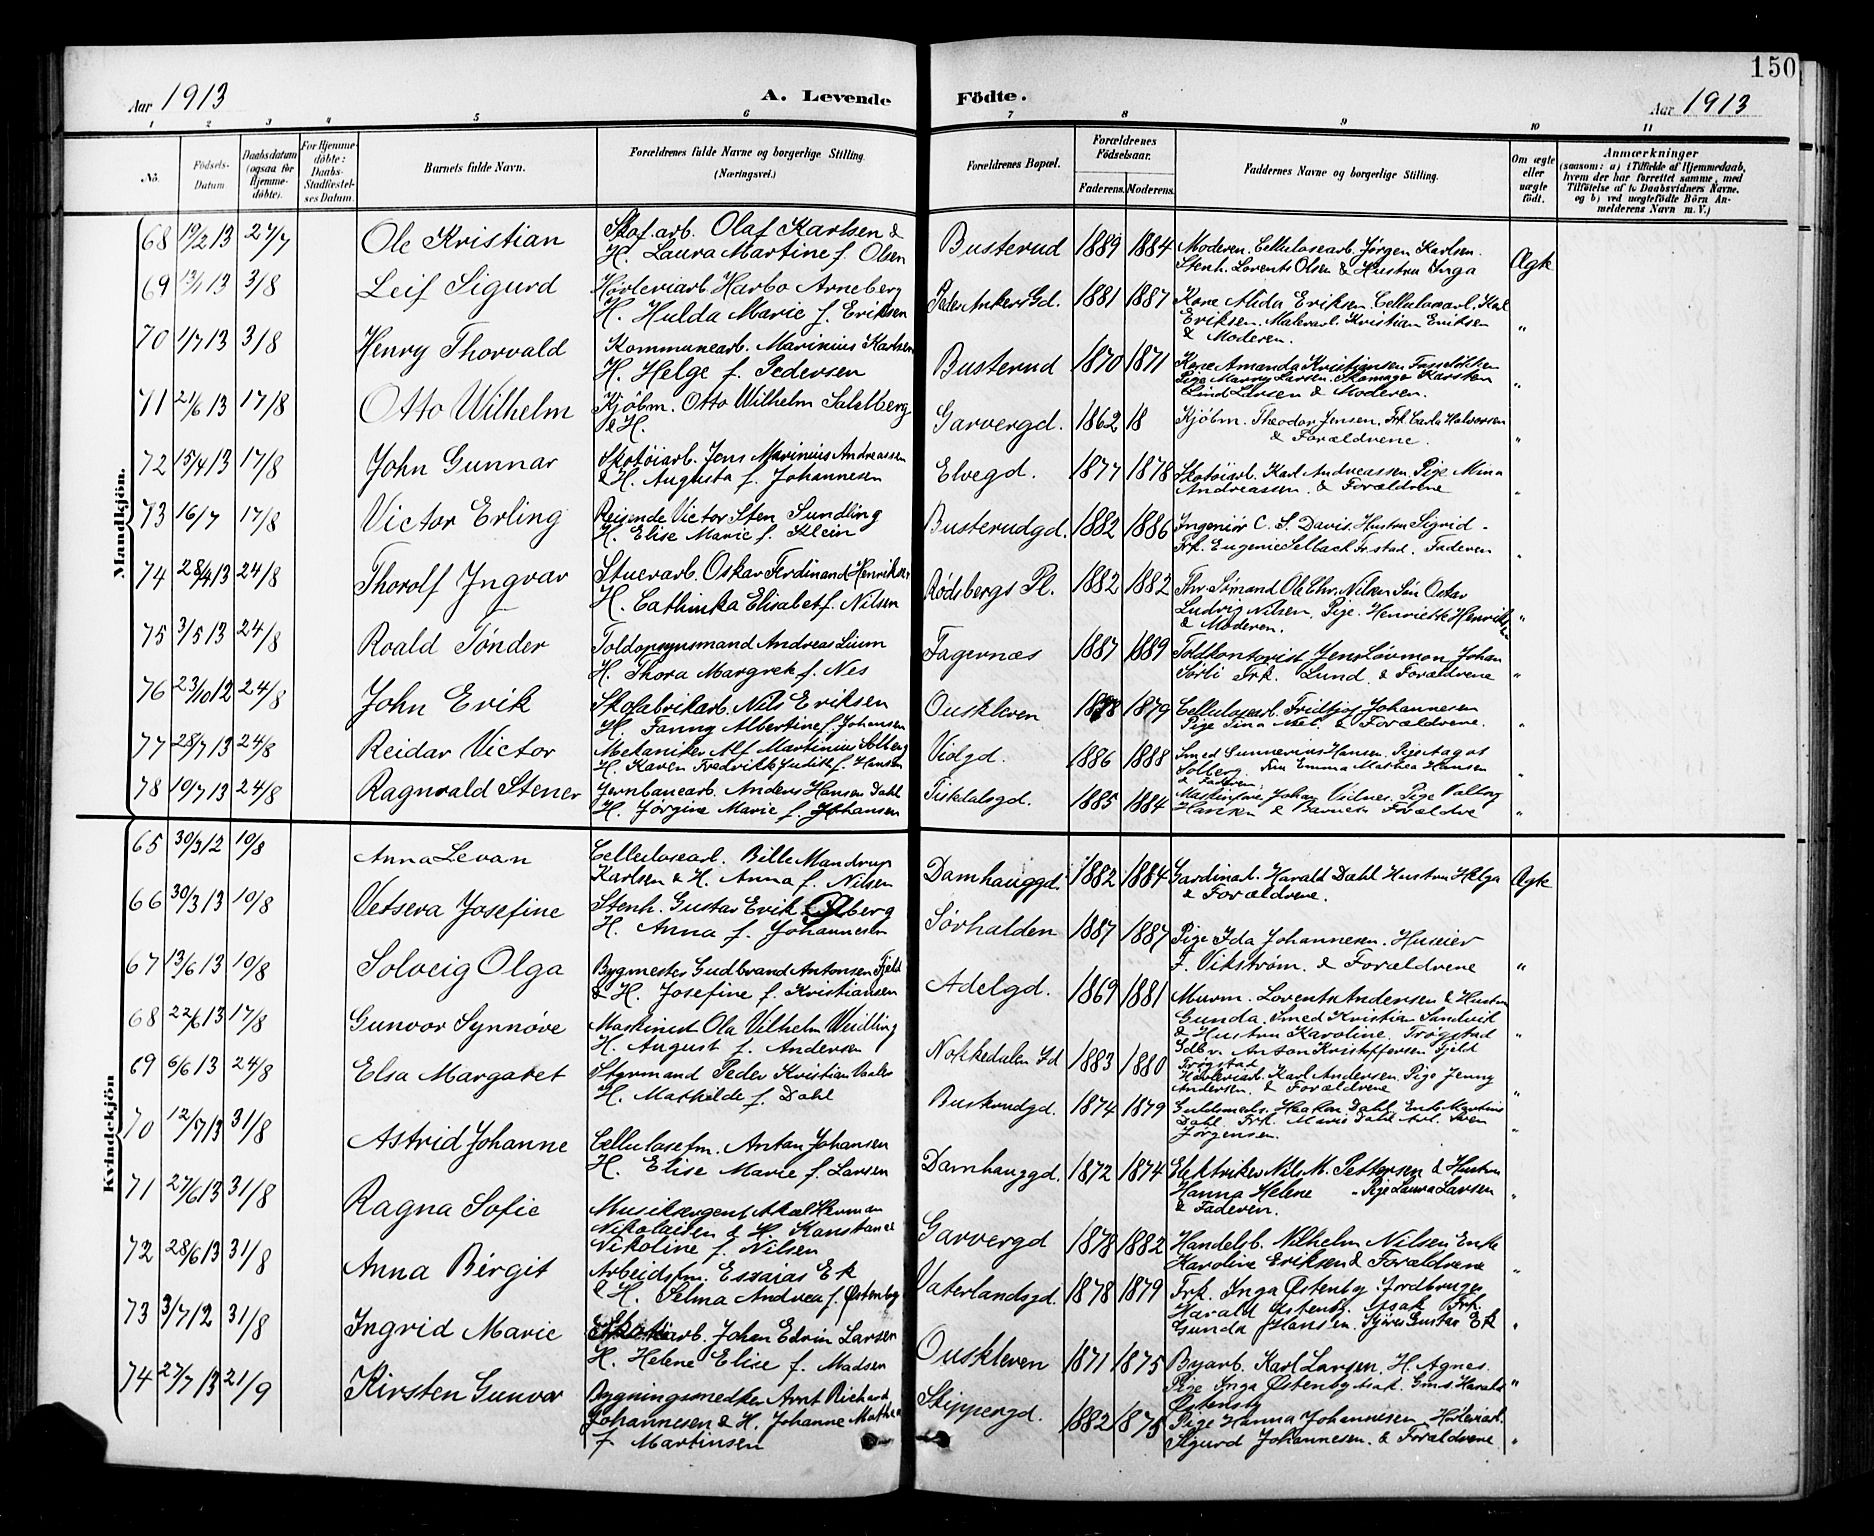 150
Aar 1913
A. Levende
Födte.
Aar 1913
1 2 3 4 5 6 7 8 9 10 11
No.
Födsels-Datum
Daabsdatum (ogsaa for Hjemmedöbte).
For Hjemmedöbte: Daabs-Stadfæstelses Datum.
Barnets fulde Navn.
Forældrenes fulde Navne og borgerlige Stilling. (Næringsvei.)
Forældrenes Bopæl.
Forældrenes Födselsaar.
Faderens.
Moderens.
Faddernes Navne og borgerlige Stilling.
Om ægte eller uægte födt.
Anmærkninger
(saasom: a) i Tilfælde af Hjemmedaab, hvem der har forrettet samme, med Tilföielse af to Daabsvidners Navne, og b) ved uægtefödte Börn Anmelderens Navn m. V.)
Mandkjön.
68 19/2 13 27/7 Ole Kristian
Skofarb. Olaf Karlsen &
H. Laura Martine f. Olsen
Busterud 1889 1884
Moderen. Cellulosearb. Jørgen Karlsen.
Stenh. Lorents Olsen & Hustru Inga
Ægte
69 13/1 13 3/8 Leif Sigurd
Høvleriarb. Harbo Arneberg
H. Hulda Marie f. Eriksen
Peder Ankers Gd. 1881 1887
Kone Alida Eriksen. Cellulosearb. Karl
Eriksen. Malerarb. Kristian Eriksen
& Moderen.
"
70 1/7 13 3/8 Henry Thorvald
Kommunearb. Marinius Karlsen
H. Helge f. Pedersen
Busterud 1870 1871
Kone Amanda Kristiansen
Pige Marry Larsen. Skomager Karsten
Lind Larsen & Moderen.
"
71 21/6 13 17/8 Otto Wilhelm
Kjøbm. Otto Wilhelm Salstberg
& H.
Garvergd. 1862 18
Kjøbm. Theodor Jensen. Frk. Carla Halvorsen
& Forældrene.
"
72 15/4 13 17/8 John Gunnar
Skotøiarb. Jens Marinius Andreassen
& H. Augusta f. Johannesen
Elvegd. 1877 1878
Skotøiarb. Karl Andreassen. Pige Mina
Andreassen. & Forældrene
"
73 16/7 17/8 Victor Erling
Reisende Victor Sten Sundling
H. Elise Marie f. Klein
Busterudgd. 1882 1886
Ingeniør C. S. Davis. Hustru Sigrid -
Frk. Eugenie Selbach Fr.stad. Faderen
"
74 28/4 13 24/8 Thorolf Ingvar
Stuerarb. Oskar Ferdinand Henriksen
H. Cathinka Elisabet f. Nilsen
Rødsbergs Pl. 1882 1882
Fhv. Sømand Ole Chr. Nilsen Søn Oskar
Ludvig Nilsen. Pige. Henriette Henriksen
& Moderen.
"
75 3/5 13 24/8 Roald Tønder
Toldopsynsmand Andreas Lium
H. Thora Margrete f. Nes
Fagernæs 1887 1889
Toldkontorist Jens Løvmon Johan
Sørli Frk. Lund. & Forældrene
"
76 23/10 12 24/8 John Erik
Skofabrikarb. Nils Eriksen
H. Fanny Albertine f. Johansen
Ouskleven 1878 1879
Cellulosearb. Fridtjof Johannesen
Pige Tina & Forældrene.
"
77 28/7 13 24/8 Reidar Victor
Mekaniker Alf Martinius Solberg
H. Karen Fredrikke Judith f. Hansen
Violgd. 1886 1888
Smed Gunnerius Hansen. Pige Aagot
Solberg. Fru Emma Mathea Hansen
& Faderen.
"
78 19/7 13 24/8 Ragnvald Stener
Jernbanearb. Anders Hansen Dahl
H. Jørgine Marie f. Johansen
Fiskedalsgd. 1885 1884
Johan Vidnes. Pige Valborg
Hansen & Barnets Forældre
"
Kvindekjön
65 30/3 12 10/8 Anna Levan
Cellulosearb. Bille Mandrup
Karlsen & H. Anna f. Nilsen
Damhauggd. 1882 1884
Gardinarb. Harald Dahl Hustru Helga
& Forældrene.
Ægte
66 30/3 13 10/8 Vetsera Josefine
Stenh. Gustav Erik Øberg
H. Anna f. Johannesen
Sørhalden 1887 1887
Pige Ida Johannesen. Huseier
F. Vikstrøm. & Forældrene
"
67 13/6 13 10/8 Solveig Olga
Bygmester Gudbrand Antonsen Fjeld
& H. Josefine f. Kristiansen
Adelgd. 1869 1881
Murm. Lorents Andersen & Hustru
Gunda. Smed Kristian Sandvik
& Hustru Karoline. Trøgstad
Gdbr. Anton Kristoffersen Fjeld
Trøgstad
"
68 22/6 13 17/8 Gunvor Synnøve
Maskinist Ola Vilhelm Weidling
H. August f. Andersen
Noskedalen Gd 1883 1880
Høvleriarb. Karl Andersen. Pige Jenny
Andersen & Forældrene
"
69 6/6 13 24/8 Elsa Margaret
Styrmand Peder Kristian Vaaler
H. Mathilde f. Dahl
Buskrudgd. 1874 1879
Guldsmeds. Haakon Dahl. Enke Martine
Dahl. Frk. Marie Dahl Arb. Sven
Jørgensen.
"
70 12/7 13 31/8 Astrid Johanne
Cellulosefm. Anton Johansen
H. Elise Marie f. Larsen
Damhauggd. 1872 1874
Elektriker Nils M. Pettersen & Hustru
Hanna Helene Pige Laura Larsen
& Faderen.
"
71 27/6 13 31/8 Ragna Sofie
Musiksergent Aksel Herman
Nikolaisen & H. Konstance
Nikoline f. Nilsen
Garvergd 1878 1882
Handelsb. Vilhelm Nilsen Enke
Karoline Eriksen & Forældrene
"
72 28/6 13 31/8 Anna Birgit
Arbeidsfm. Essaias Ek
& H. Selma Andrea f. Østenby
Vaterlandsgd. 1878 1879
Frk. Inga Østenby. Jordbruger
Harald Østenby. Isak Frk.
Gunda Hansen. Gustav Ek
"
73 3/7 12 31/8 Ingrid Marie
Skotøiarb. Johan Edvin Larsen
H. Helene Elise f. Madsen
Ouskleven 1871 1875
Byarb. Karl Larsen. H. Agnes.
Pige Inga Østenby Isak. Gms. Harald
Østenby
"
74 27/7 13 21/9 Kirsten Gunvor
Bygningssnedker Arnt Richard
Johannesen & H. Johanne Mathea
f. Martinsen
Skippergd. 1882 1875
Pige Hanna Johannesen Høvleriarb.
Sigurd Johannesen. & Forældrene
"